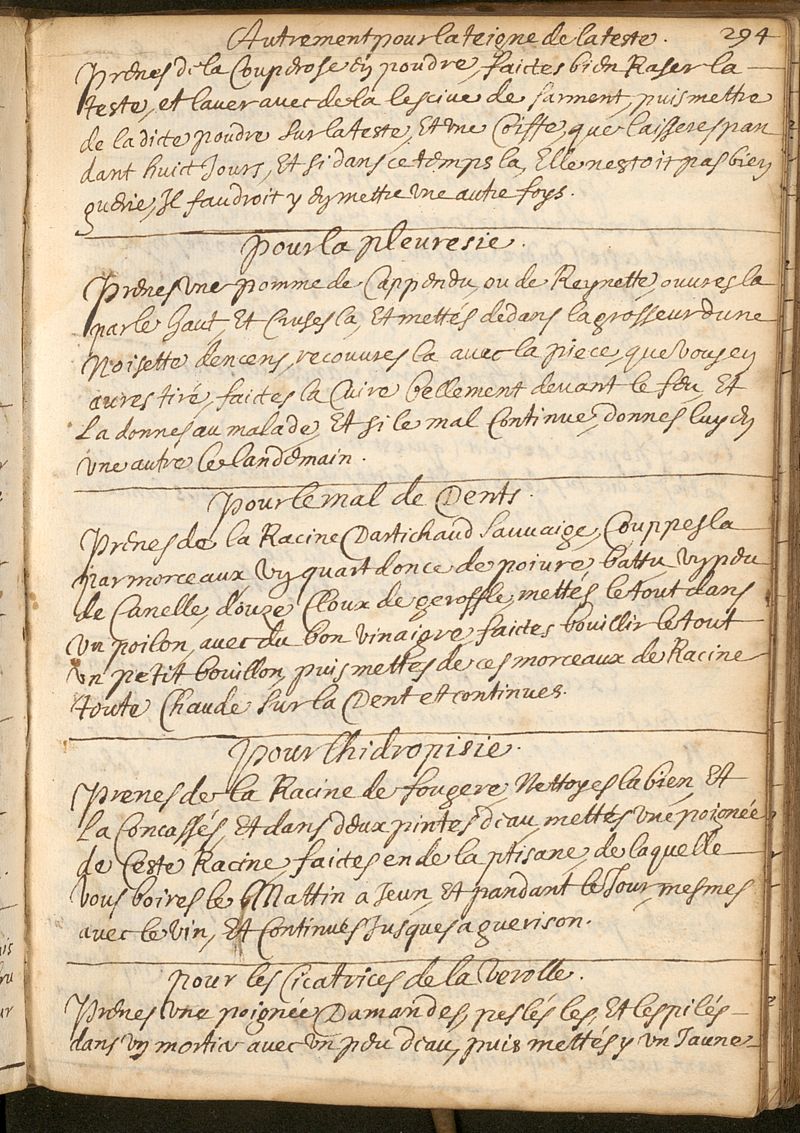 Autrement pour la teigne de la teste. 294
Prenes de la Couperose en poudre, faictes bien Raser la
teste, et laver avec de la lescive de sarment, puis mettre
de la dicte poudre sur la teste, Et une Coiffe, que laisseres pan
dant huict Jours, Et si dans ce temps la, Elle nestoit pas bien
guerie, Il faudroit y en mettre une autre foys.
pour la pleuresie.
Prenes une pomme de Cappendu, ou de Reynette, ouvres la
par le haut, Et Cruses la, Et mettes dedans la grosseur dune
Noisette dencens, recouvres la avec la piece, que vous en
aures tiré, faictes la Cuire bellement devant le feu, Et
La donnes au malade, Et si le mal Continue, donnes luy en
une autre le landemain.
pour le mal de Dents.
Prenes de la Racine Dartichaud Sauvaige, Couppes la
par morceaux, un quart donce de poivre battu, un peu
de Canelle, douze Cloux de geroffle, mettés le tout dans
un poilon, avec du bon vinaigre, faictes bouillir le tout
un petit bouillon, puis mettes de ces morceaux de Racine
toute Chaude sur la Dent et continues.
pour lhidropisie.
Prenes de la Racine de fougere, Nettoyes la bien, Et
La Concassés, Et dans deux pintes deau, mettes une poignée
de Ceste Racine, faictes en de la ptisane, de laquelle
vous boires le Mattin a Jeun, Et pandant le Jour, mesmes
avec le vin, Et Continues Jusques a guerison.
pour les Cicatrices de la verolle.
Prenes une poignée Damandes, peslés les, Et les pilés
dans un mortier avec un peu deau, puis mettés y un Jaune